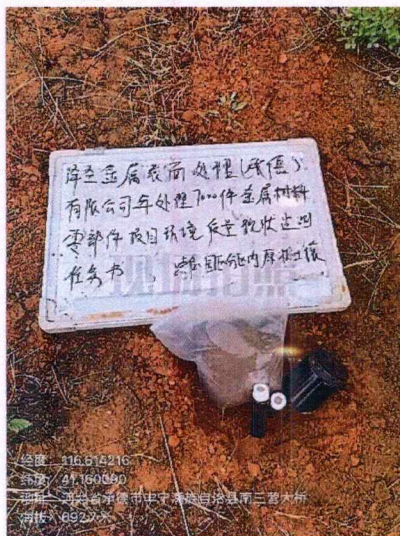 隆至金属表面处理(承德)
有限公司年处理7000件金属材料
零部件项目环境质量现状监测
任务书,
现场拍照
经度:116.614216
纬度:41.160090
地址:河北省承德市丰宁满族自治县南三营大桥
海拔:692.7米